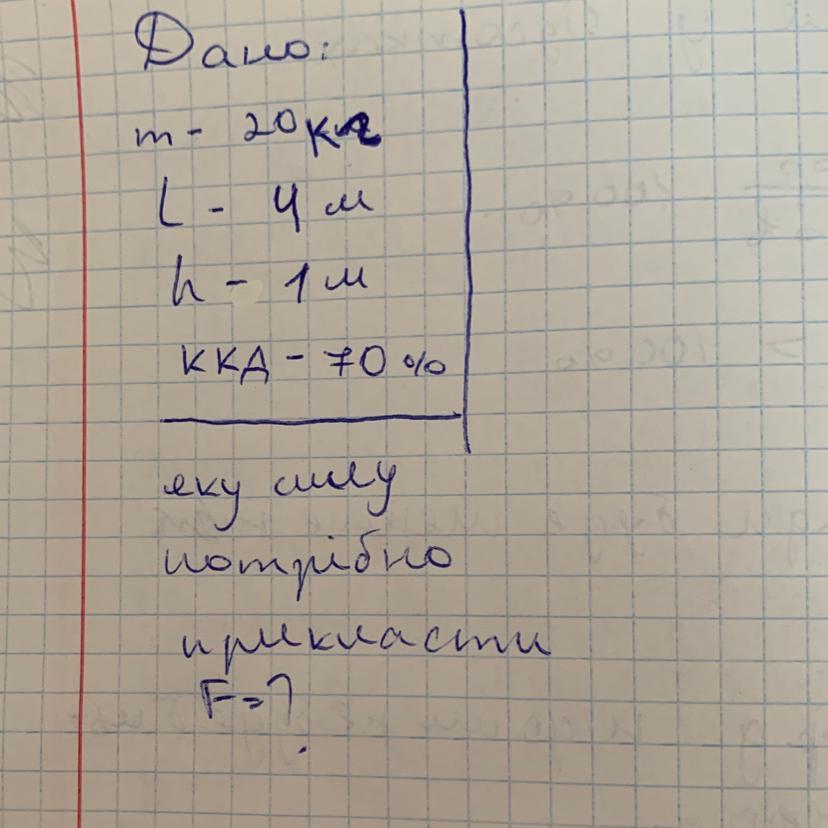 Дано:
m - 20 кг
L - 4 м
h - 1 м
ККД - 70 %
яку силу
потрібно
прикласти
F = ?